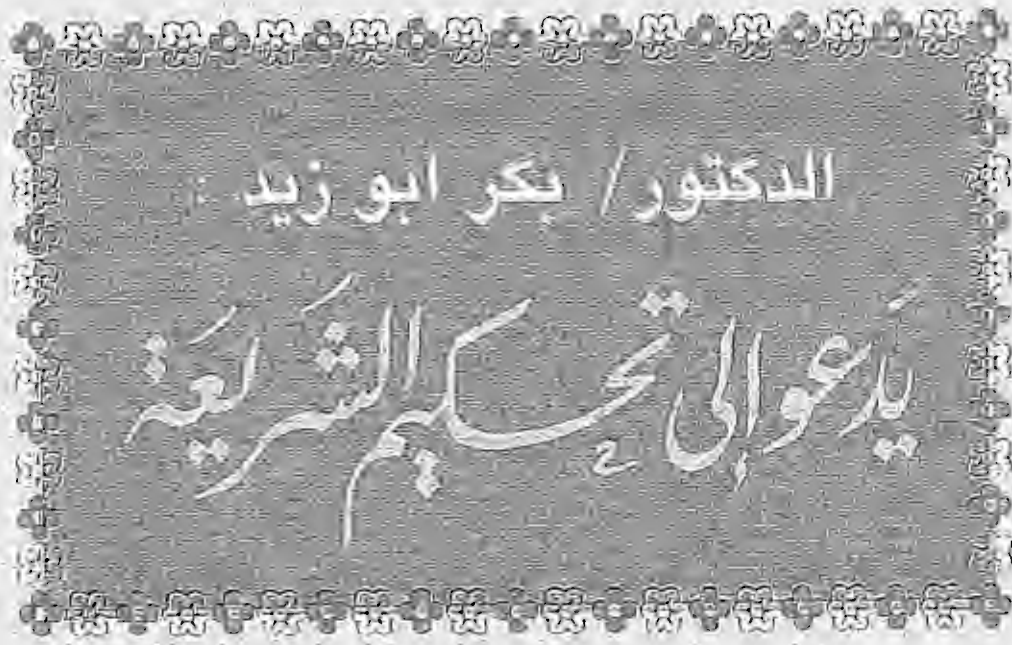 الدكتور / بكر ابو زيد :
يَدعو إلى تحكيم الشَريعَة